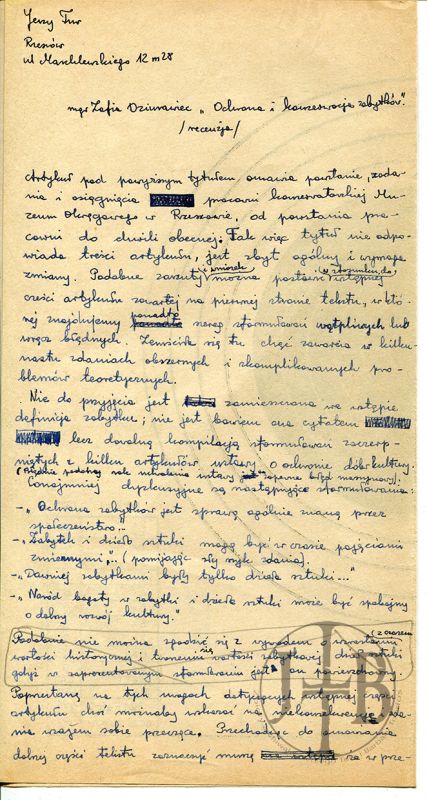 Jerzy Tur
Rzeszów
ul Marchlewskiego 12 m 28
mgr Zofia Dziurawiec „Ochrona i konserwacja zabytków."
/recenzja/
Artykuł pod powyższym tytułem omawia powstanie, zada-
nia i osiągnięcia pracowni konserwatorskiej Mu-
zeum Okręgowego w Rzeszowie, od powstania pra-
cowni do chwili obecnej. Tak więc tytuł nie odpo-
wiada treści artykułu, jest zbyt ogólny i wymaga
zmiany. Podobne zarzuty i wnioski można postawić w stosunku do wstępnej
części artykułu zawartej na pierwszej stronie tekstu, w któ-
rej znajdujemy ponadto szereg sformułowań wątpliwych lub
wręcz błędnych. Zemściła się tu chęć zawarcia w kilku-
nastu zdaniach obszernych i skomplikowanych pro-
blemów teoretycznych.
Nie do przyjęcia jest zamieszczona we wstępie
definicja zabytku; nie jest bowiem ona cytatem
lecz dowolną kompilacją sformułowań zaczerp-
niętych z kilku artykułów ustawy o ochronie dóbr kultury.
(Błędnie podany rok uchwalenia ustawy to zapewne błąd maszynowy).
Conajmniej dyskusyjne są następujące sformułowania:
- „Ochrona zabytków jest sprawą ogólnie znaną przez
społeczeństwo"
- „Zabytek i dzieło sztuki mogą być w czasie pojęciami
zmiennymi"... (pomijając zły szyk zdania).
- „Dawniej zabytkami były tylko dzieła sztuki..."
- „Naród bogaty w zabytki i dzieła sztuki może być spokojny
o dobry rozwój kultury."
Podobnie nie można zgodzić się z wywodem o wzrastaniu z czasem
wartości historycznej i tworzeniu się wartości zabytkowej dzieł sztuki
gdyż w zaprezentowanym sformułowaniu jest on powierzchowny
Poprzestanę na tych uwagach dotyczących wstępnej części
artykułu choć można by wskazać na
nia wzajem sobie przeczące. Przechodząc do omawiania
dalszej części tekstu zaznaczyć muszę że w prze-